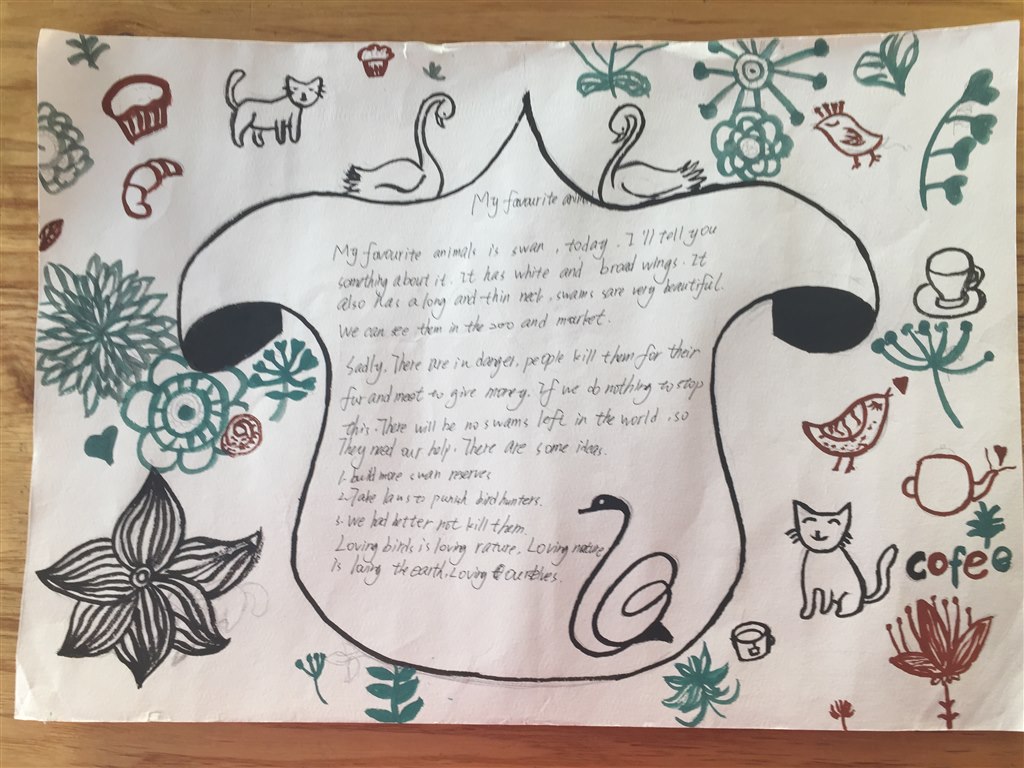 My favourite anim
My favourite animals is swan , today . I'll tell you
something about it . It has white and broad wings . It
also has a long and thin neck . swams sare very beautiful.
We can see them in the zoo and market.
Sadly, There are in danger, people kill them for their
fur and meet to give money. If we do nothing to stop
this. There will be no swams left in the world , so
They need our help. There are some ideas.
1. build more swan reserves
2. Take laws to punish bird hunters.
3. we had better not kill them.
Loving birds is loving nature. Loving nature
is loving the earth. Loving ourselves.
cofee